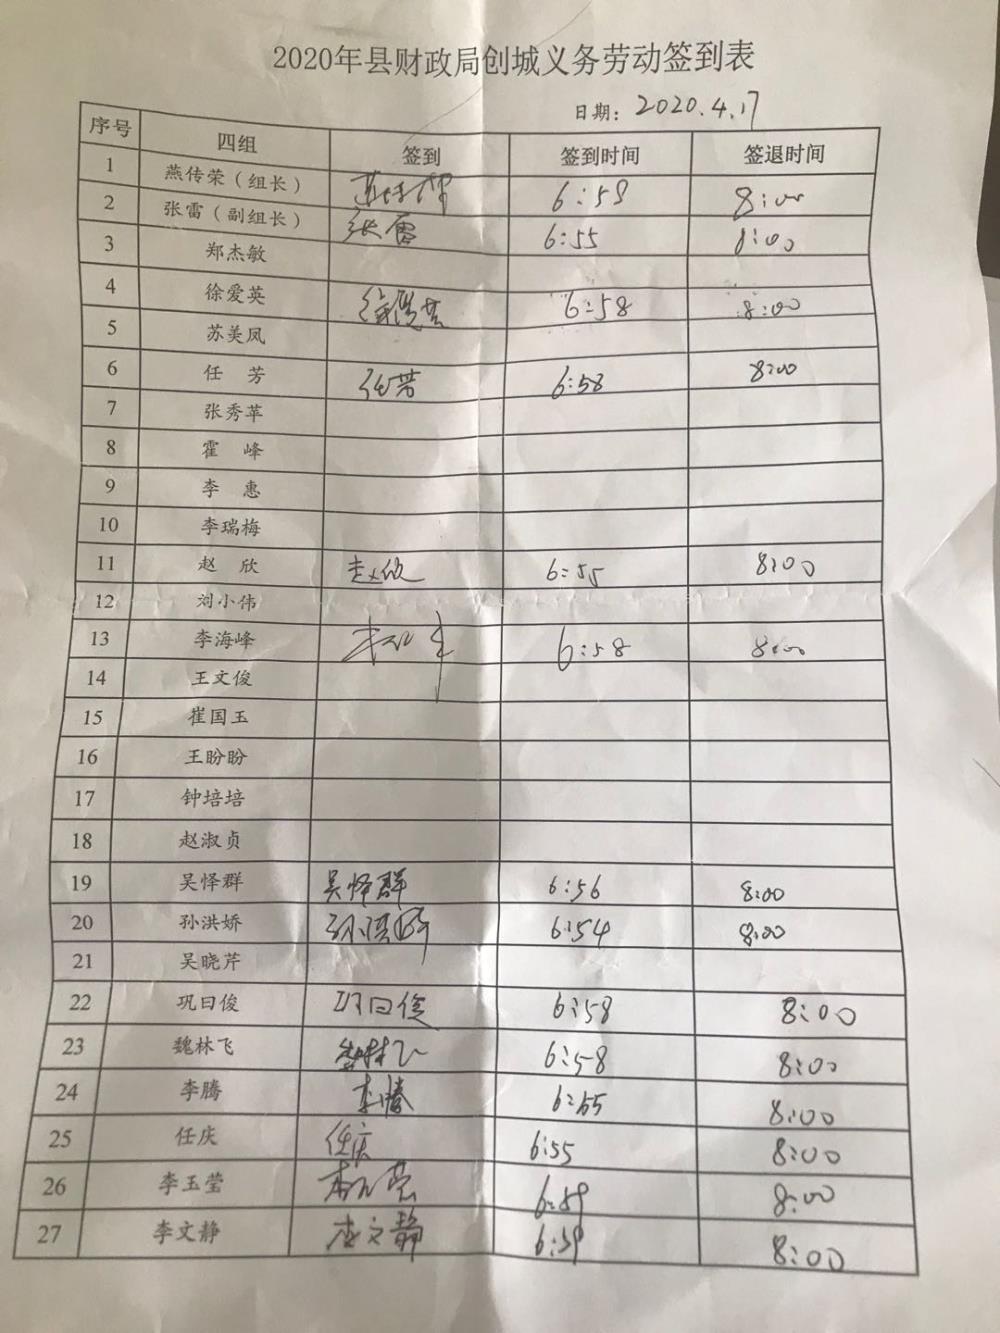 2020年县财政局创城义务劳动签到表
日期：2020.4.17
序号 四组 签到 签到时间 签退时间
1 燕传荣（组长） 燕传荣 6:58 8:00
2 张雷（副组长） 张雷 6:55 8:00
3 郑杰敏
4 徐爱英 徐爱英 6:58 8:00
5 苏美凤
6 任 芳 任芳 6:58 8:00
7 张秀苹
8 霍 峰
9 李 惠
10 李瑞梅
11 赵 欣 赵欣 6:55 8:00
12 刘小伟
13 李海峰 6:58 8:00
14 王文俊
15 崔国玉
16 王盼盼
17 钟培培
18 赵淑贞
19 吴怿群 吴怿群 6:56 8:00
20 孙洪娇 孙洪娇 6:54 8:00
21 吴晓芹
22 巩曰俊 巩曰俊 6:58 8:00
23 魏林飞 魏林飞 6:58 8:00
24 李腾 李腾 6:55 8:00
25 任庆 任庆 6:55 8:00
26 李玉莹 李玉莹 6:59 8:00
27 李文静 李文静 6:59 8:00